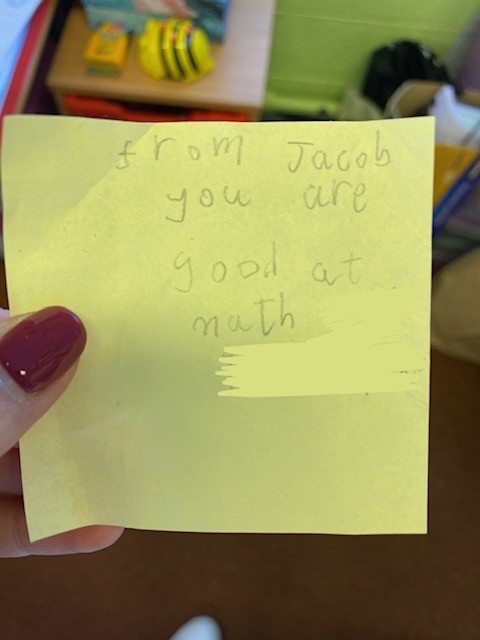 from Jacob
you are
good at
math